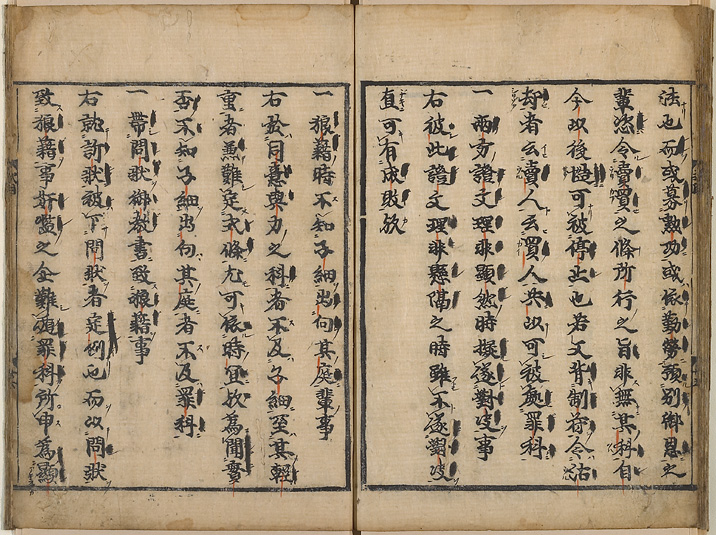 法也而或募勲功或依勤勞預別御恩之
輩恣令賣買之條所行之旨非無其科自
今以後慥可被停止也若又背制符令沽
却者云賣人云買人共以可被處罪科
一 兩方證文理非顯然時擬遂對决事
右彼此證文理非懸隔之時雖不遂對决
直可有成敗歟
一 狼藉時不知子細出向其庭輩事
右於同意與力之科者不及子細至其輕
重者兼難定式條尤可依時宜歟為聞實
否不知子細出向其庭者不及罪科
一 帶問狀御教書致狼藉事
右就訴狀被下問狀者定例也而以問狀
致狼藉事姧濫之企難遁罪科所申為顯